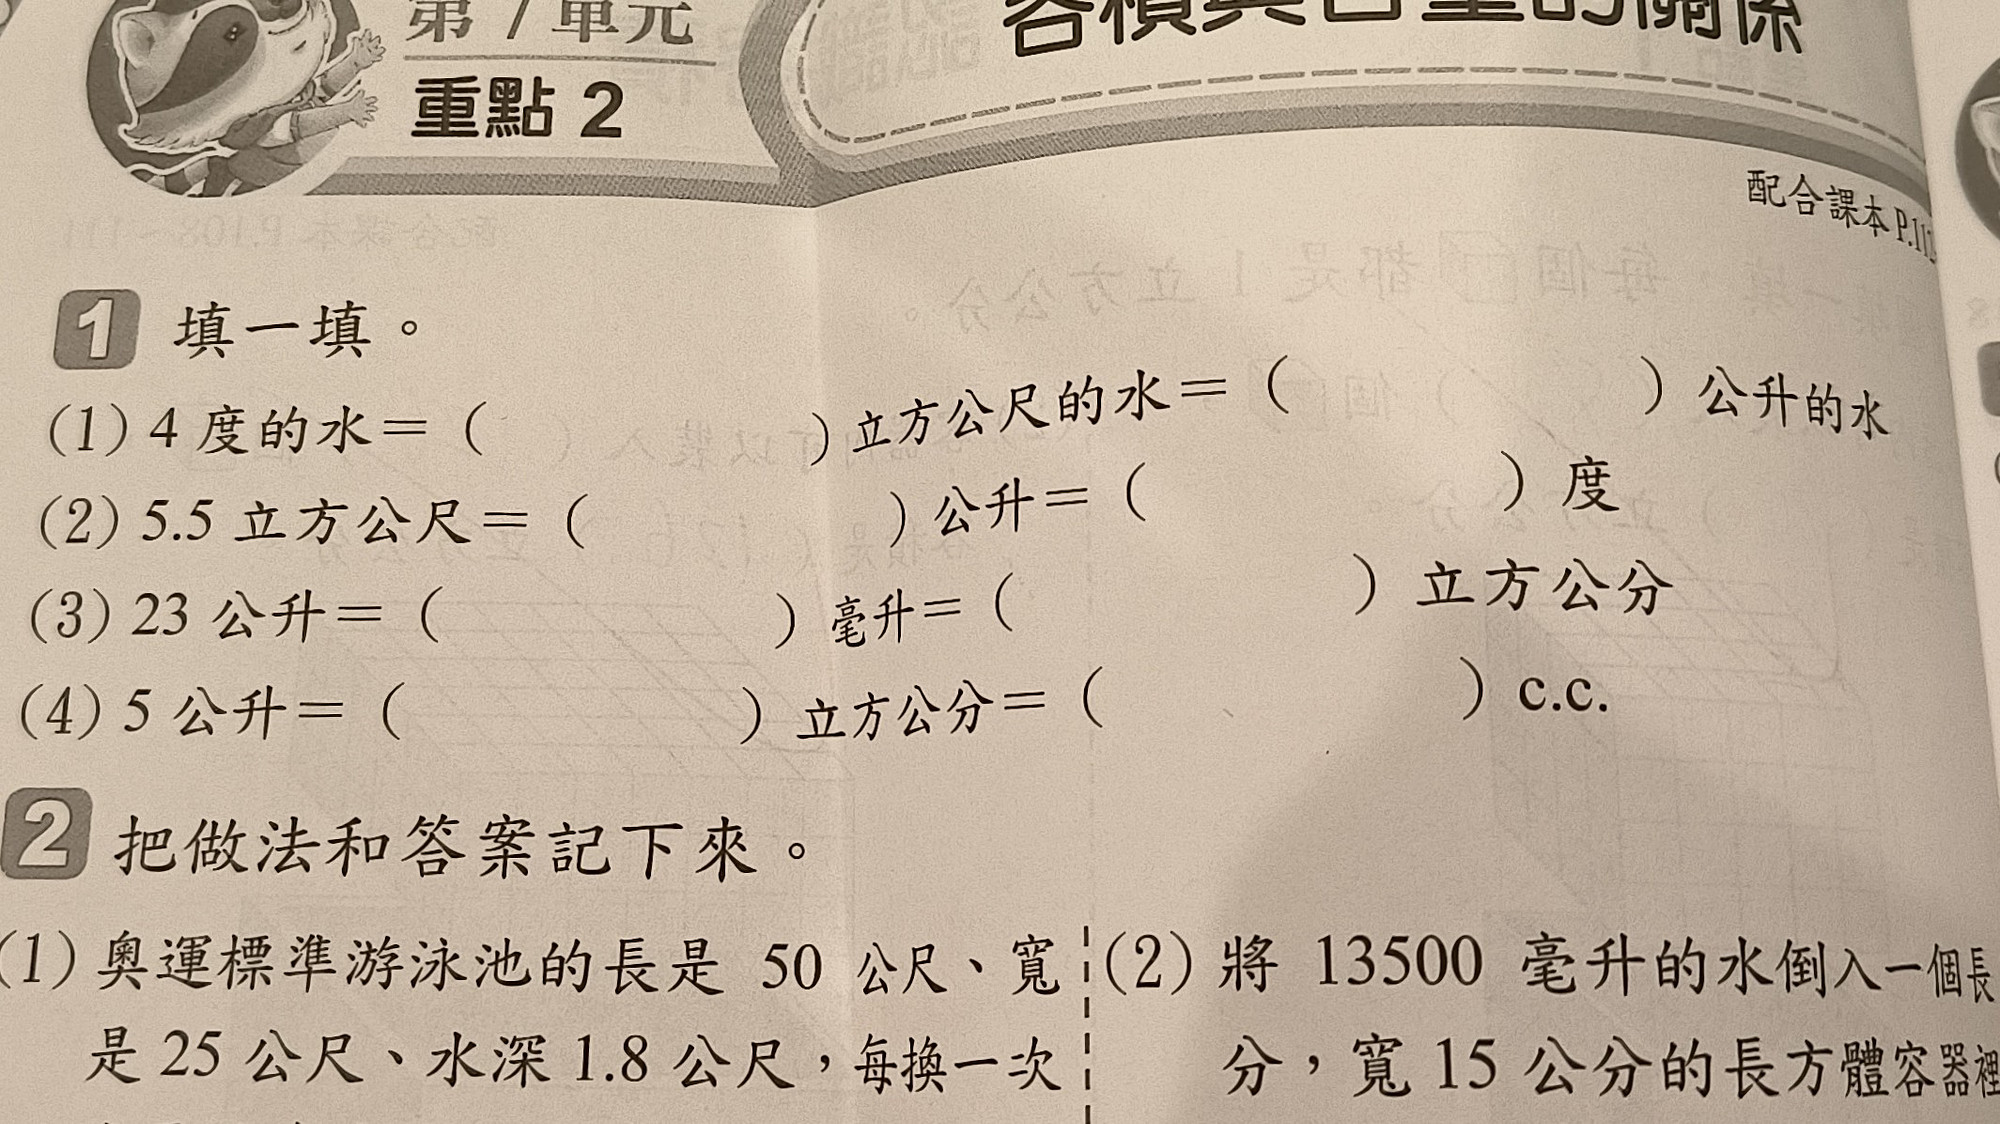 第7單元
重點2
容積與容量的關係
配合課本P.112
1 填一填。
(1) 4 度的水＝（　　）立方公尺的水＝（　　）公升的水
(2) 5.5 立方公尺＝（　　）公升＝（　　）度
(3) 23 公升＝（　　）毫升＝（　　）立方公分
(4) 5 公升＝（　　）立方公分＝（　　）c.c.
2 把做法和答案記下來。
(1) 奧運標準游泳池的長是 50 公尺、寬
是 25 公尺、水深 1.8 公尺，每換一次
(2) 將 13500 毫升的水倒入一個長
分，寬 15 公分的長方體容器裡